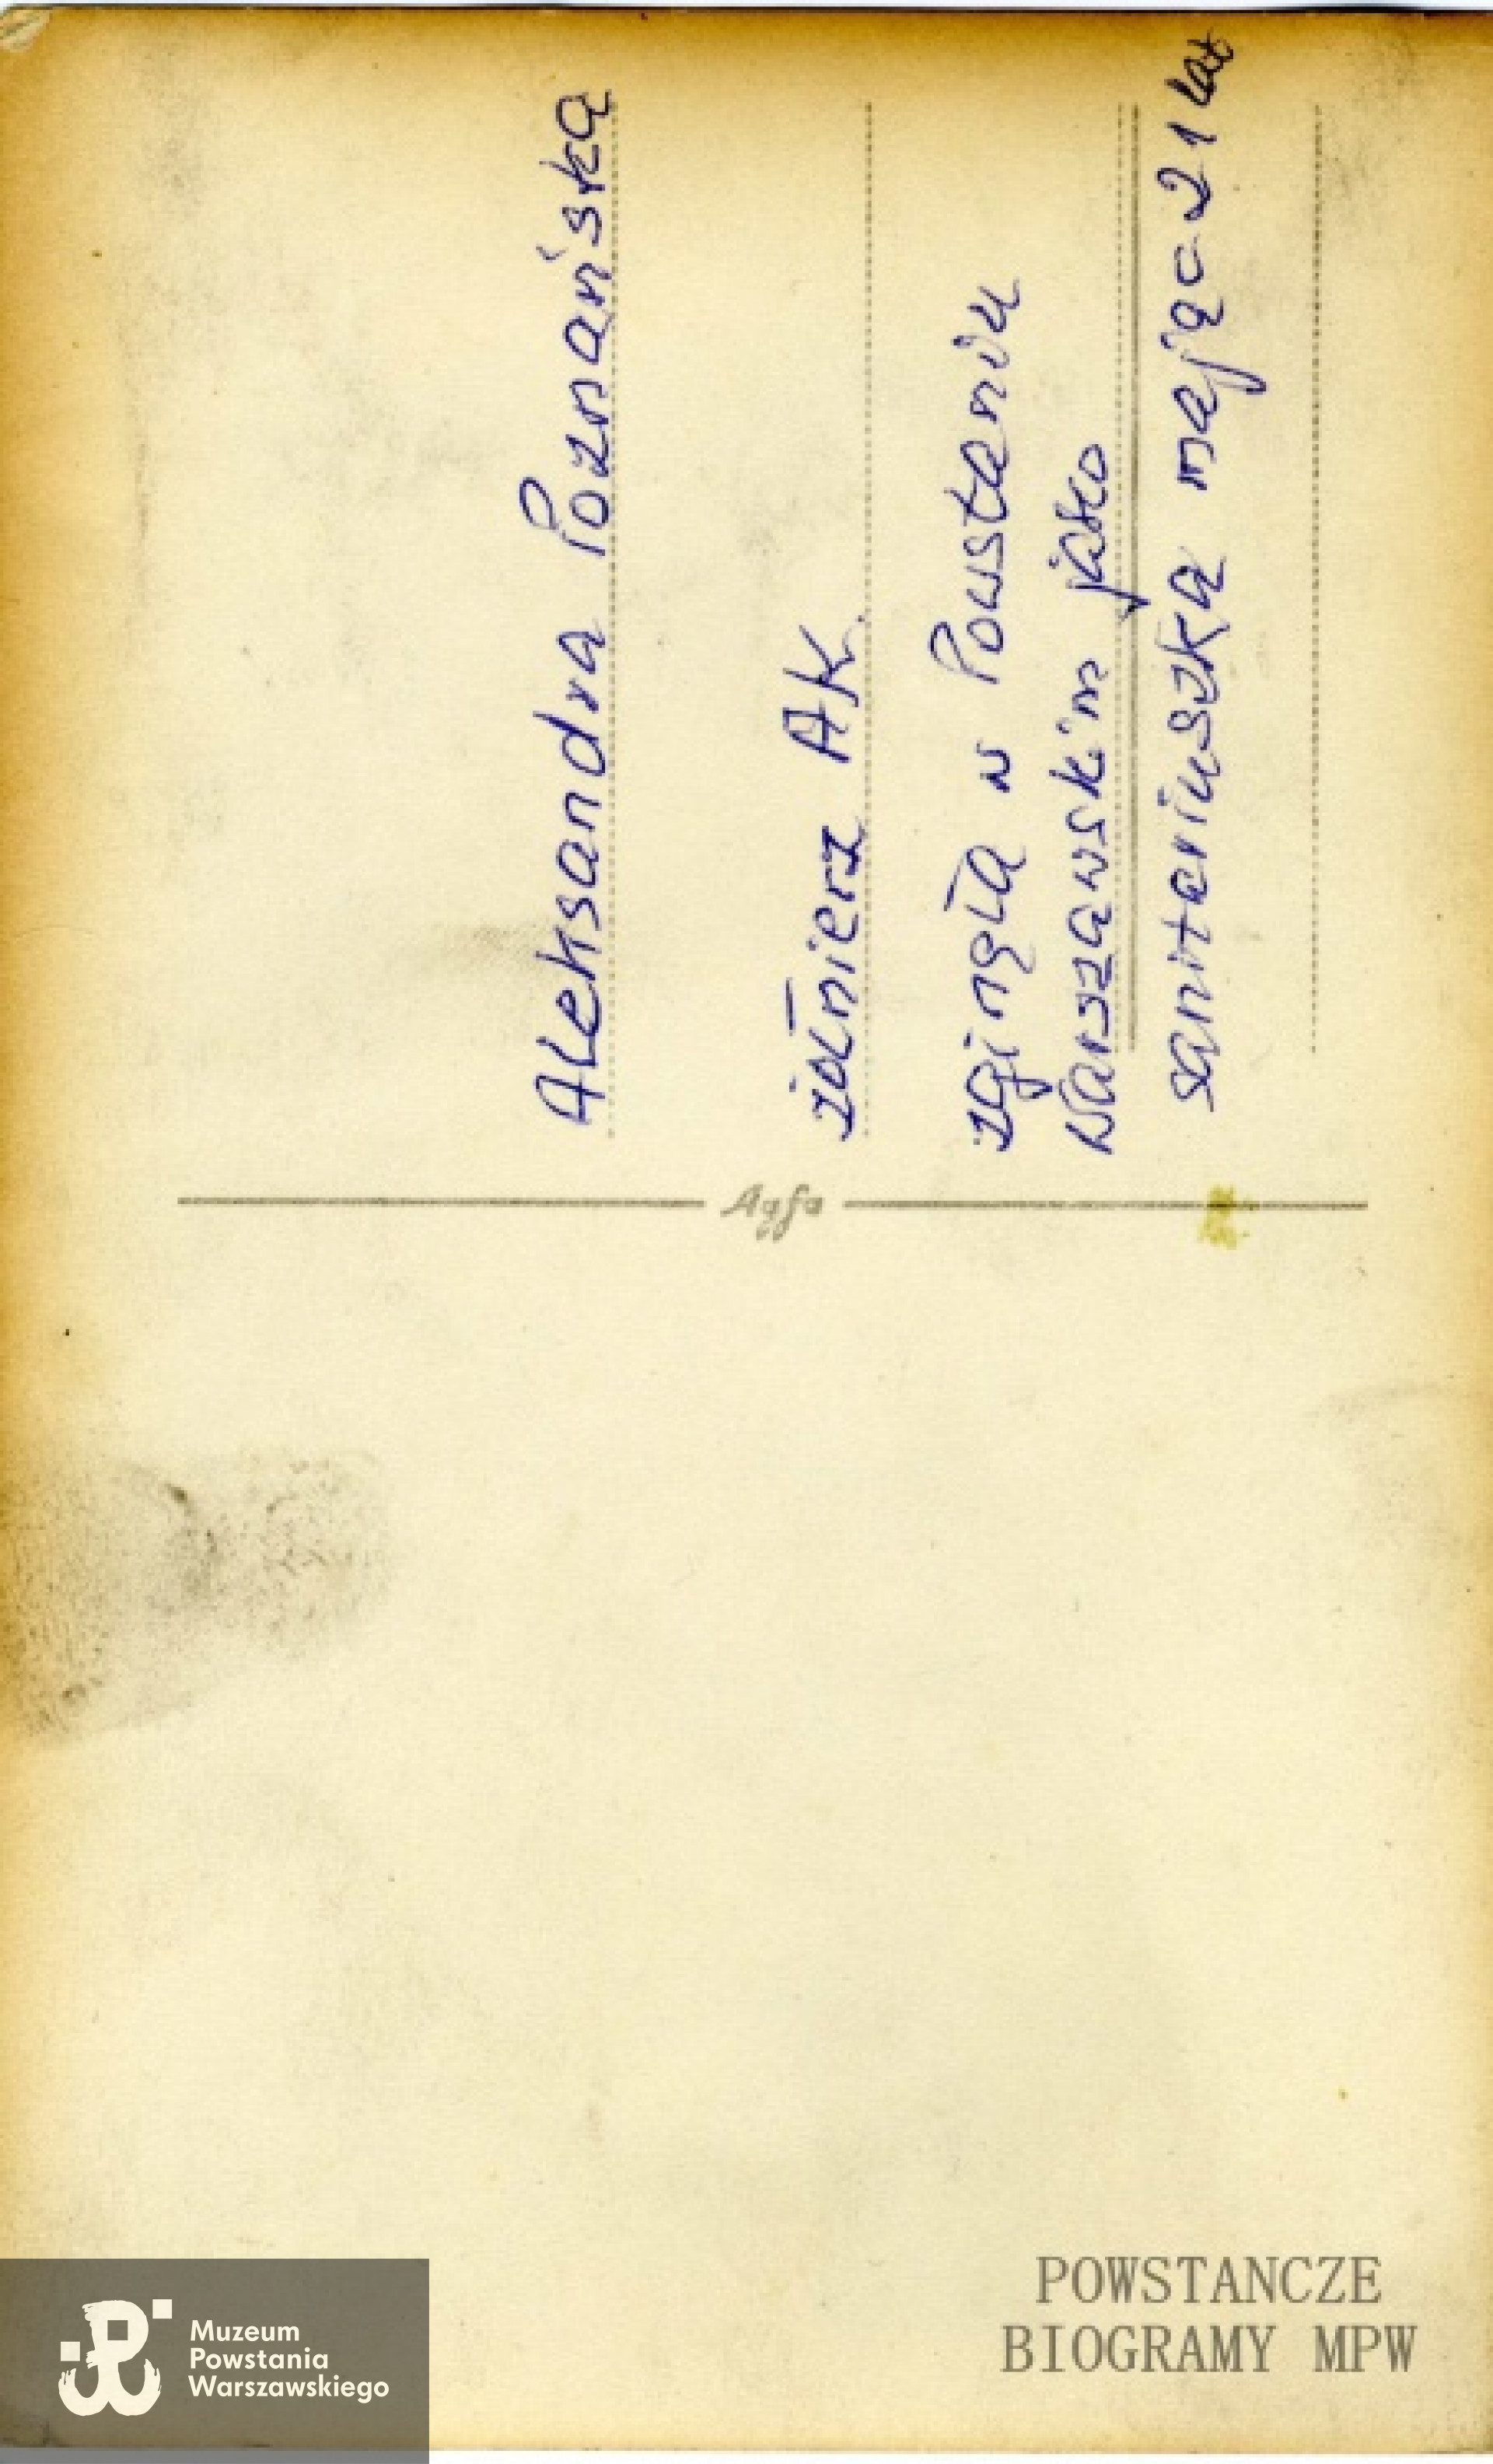 Aleksandra Poznańska
żołnierz AK
zginęła w Powstaniu
Warszawskim jako
sanitariuszka mając 21 lat
Agfa
Muzeum
Powstania
Warszawskiego
POWSTANCZE
BIOGRAMY MPW